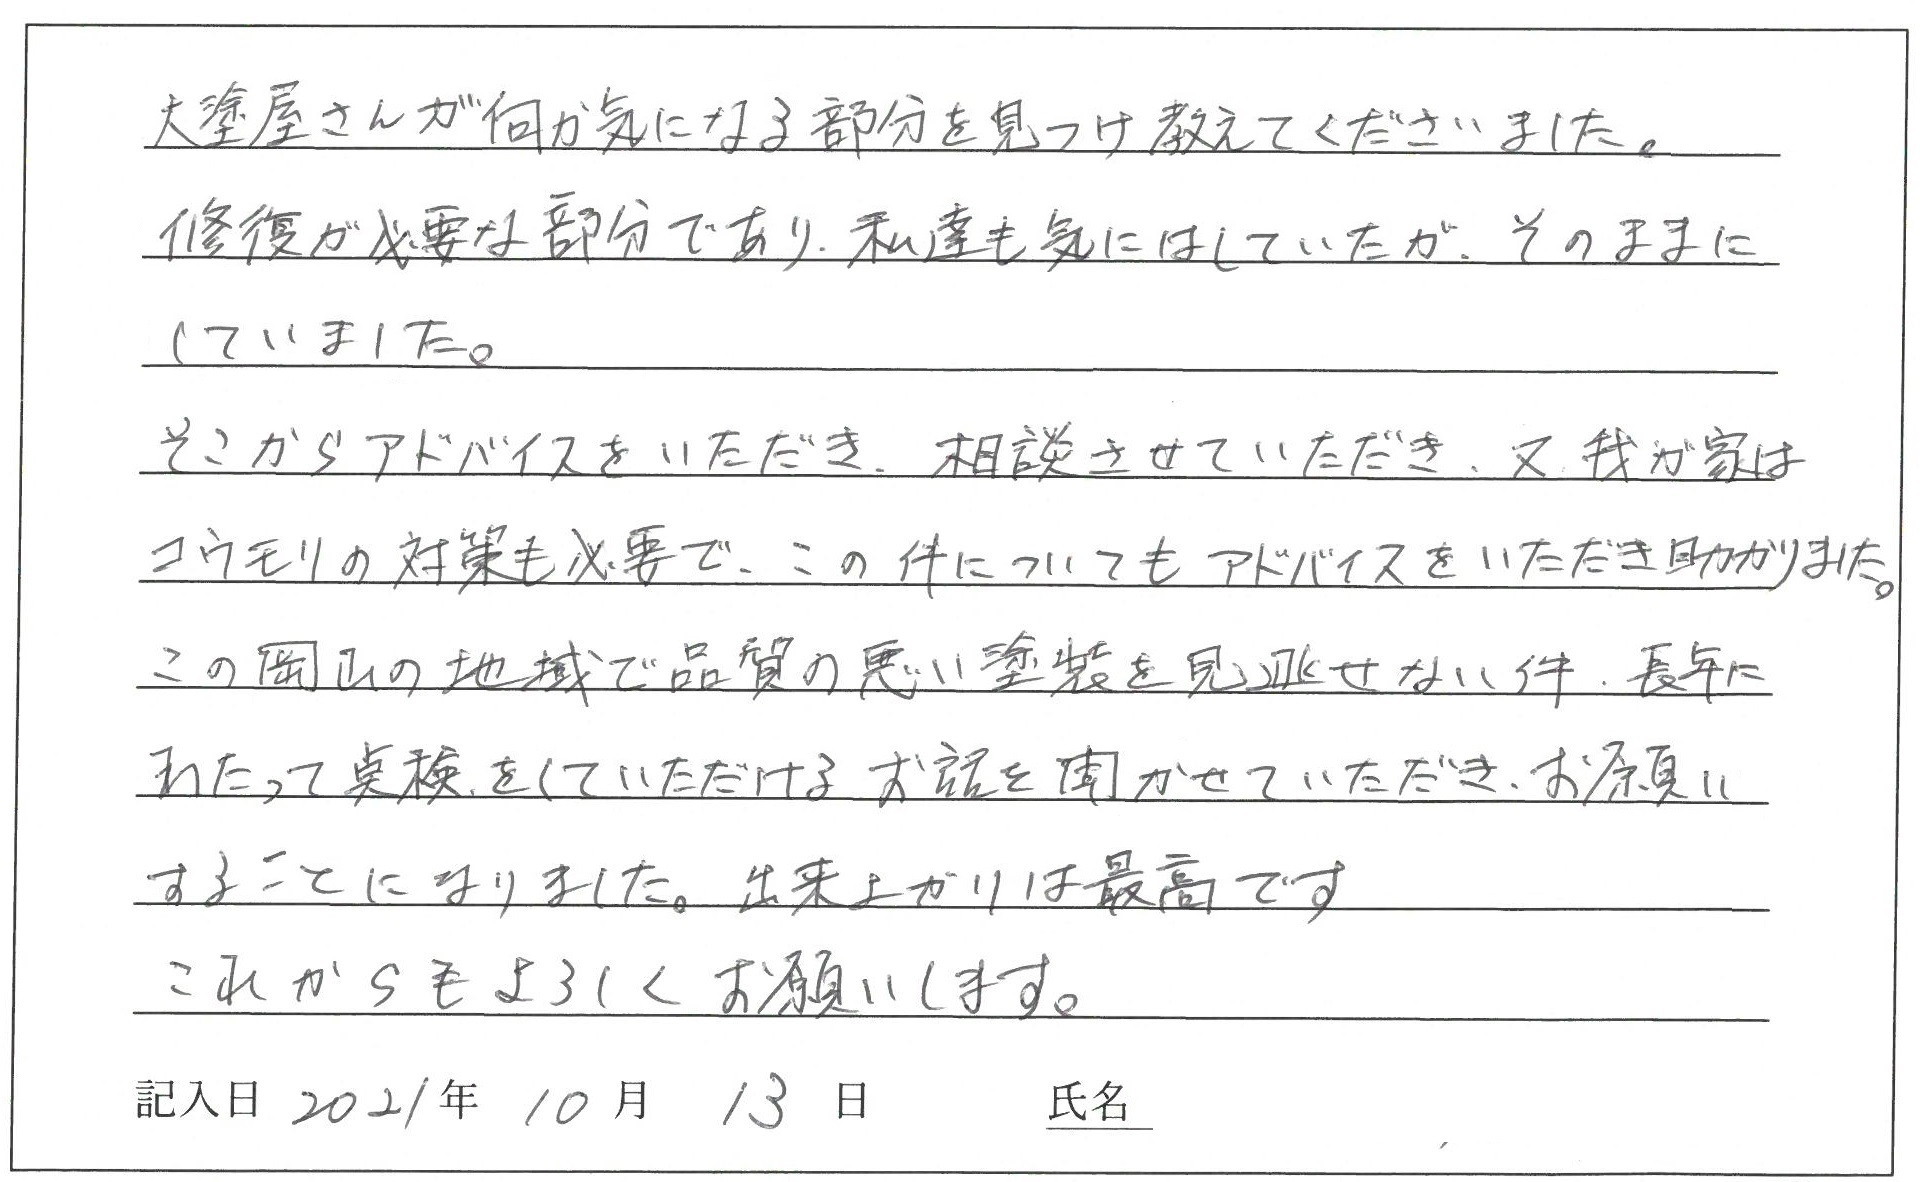 大塗屋さんが何か気になる部分を見つけ教えてくださいました。
修復が必要な部分であり、私達も気にはしていたが、そのままに
していました。
そこからアドバイスをいただき、相談させていただき、又、我が家は
コウモリの対策も必要で、この件についてもアドバイスをいただき助かりました。
この岡山の地域で品質の悪い塗装を見逃せない件、長年に
わたって点検をしていただけるお話を聞かせていただき、お願い
することになりました。出来上がりは最高です
これからもよろしくお願いします。
記入日 2021年 10月 13日 氏名